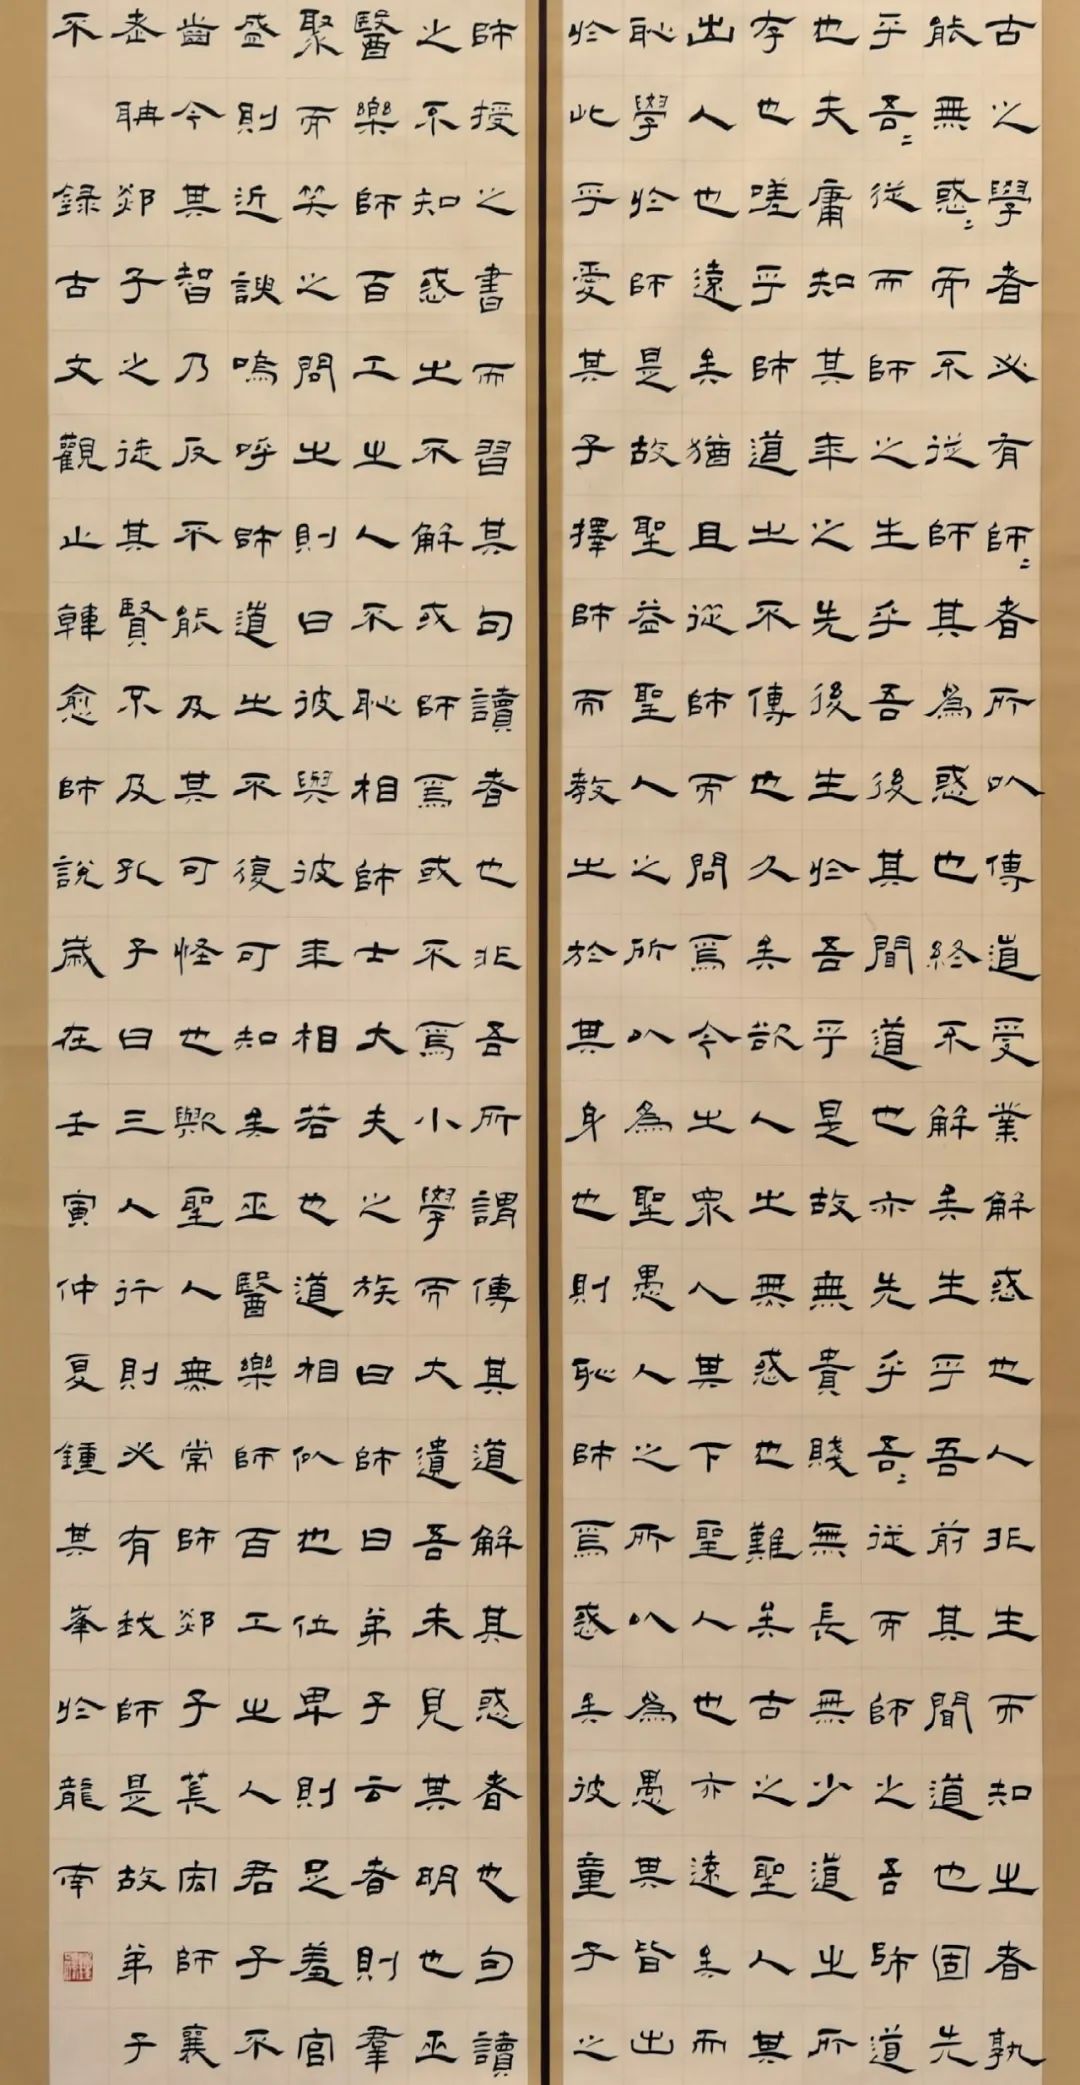 古之學者必有師〻者所以傳道受業解惑也人非生而知之者孰
能無惑〻而不從師其為惑也終不解矣生乎吾前其聞道也固先
乎吾〻從而師之生乎吾後其聞道也亦先乎吾〻從而師之吾師道
也夫庸知其年之先後生於吾乎是故無貴賤無長無少道之所
存也嗟乎師道之不傳也久矣欲人之無惑也難矣古之聖人其
出人也遠矣猶且從師而問焉今之衆人其下聖人也亦遠矣而
恥學於師是故聖益聖人之所以為聖愚人之所以為愚其皆出
於此乎愛其子擇師而教之於其身也則恥師焉惑矣彼童子之
師授之書而習其句讀者也非吾所謂傳其道解其惑者也句讀
之不知惑之不解或師焉或不焉小學而大遺吾未見其明也巫
醫樂師百工之人不恥相師士大夫之族曰師曰弟子云者則羣
聚而笑之問之則曰彼與彼年相若也道相似也位卑則足羞官
盛則近諛嗚呼師道之不復可知矣巫醫樂師百工之人君子不
齒今其智乃反不能及其可怪也歟聖人無常師郯子萇宏師襄
老聃郯子之徒其賢不及孔子曰三人行則必有我師是故弟子
不 錄古文觀止韓愈師說歲在壬寅仲夏鍾其峯於龍南